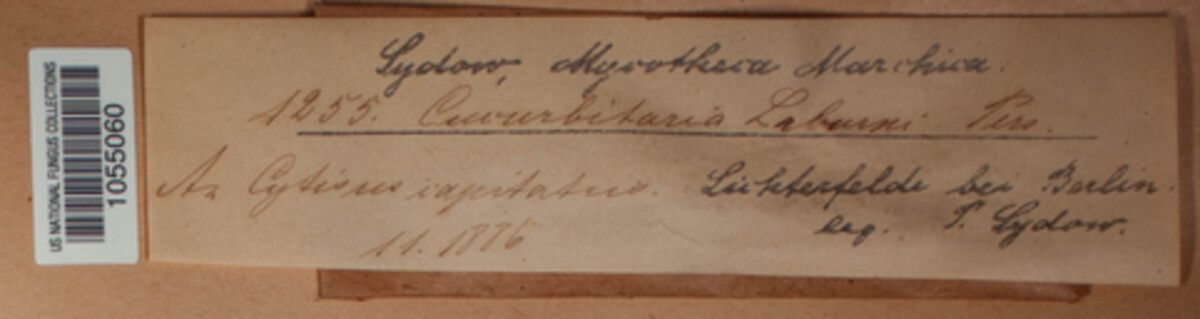 US NATIONAL FUNGUS COLLECTIONS
1055060
Sydow, Mycotheca Marchica.
1255. Cucurbitaria Laburni Pers.
An Cytisus capitatus. Lichterfelde bei Berlin.
11. 1886 leg. P. Sydow.